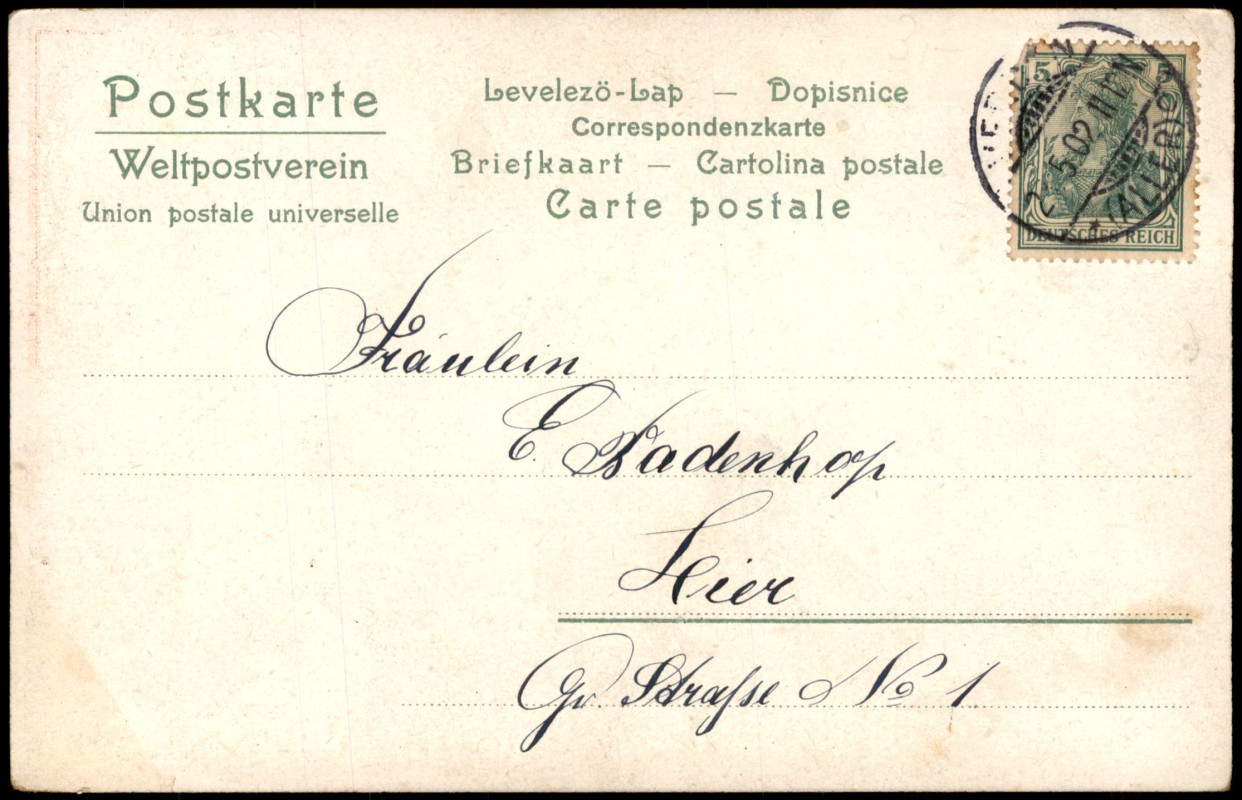 Postkarte
Weltpostverein
Union postale universelle
Levelező-Lap — Dopisnice
Correspondenzkarte
Briefkaart — Cartolina postale
Carte postale
5 5
2.5.02 11-12N
* (ALLER)
DEUTSCHES REICH
Fräulein
E. Badenhop
Hier
Gr. Straſse No 1